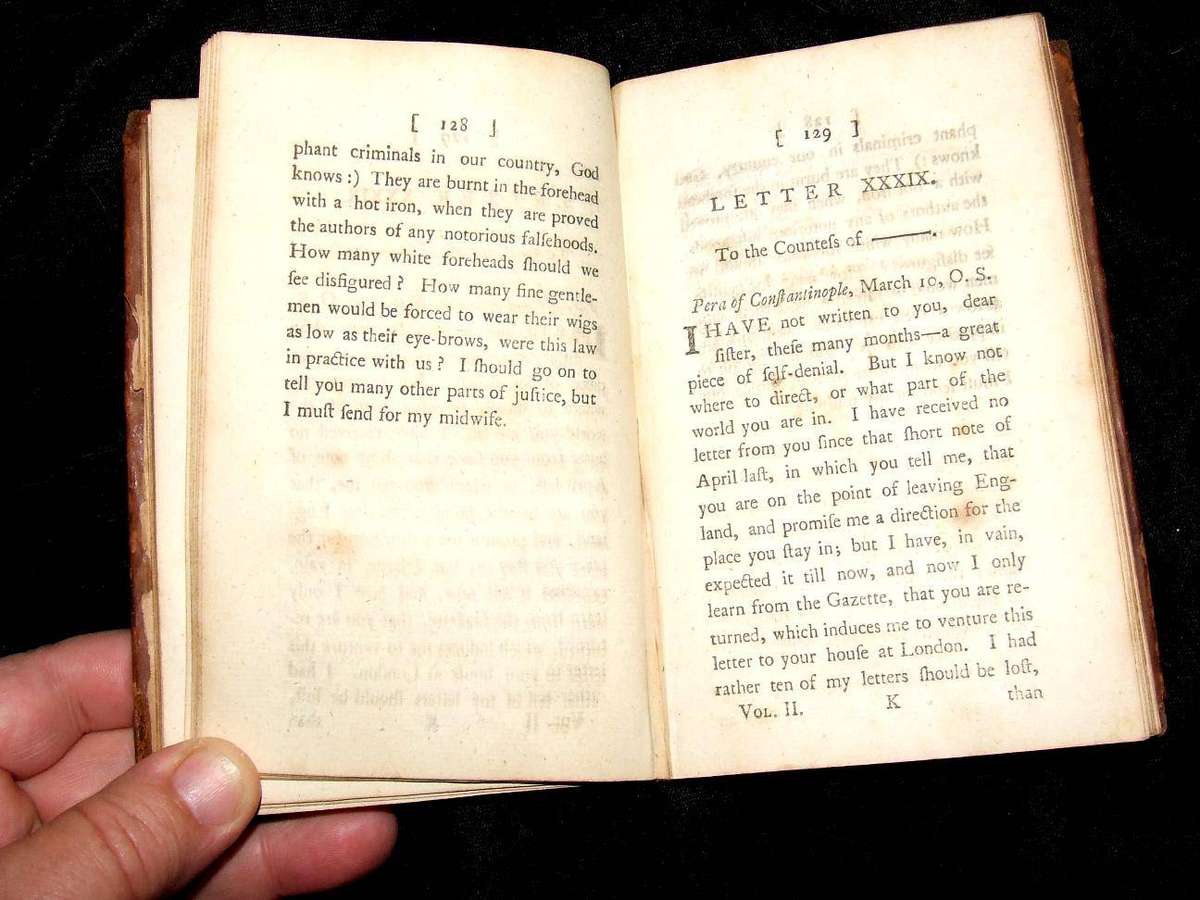 [ 128 ]
phant criminals in our country, God
knows :) They are burnt in the forehead
with a hot iron, when they are proved
the authors of any notorious falſehoods.
How many white foreheads ſhould we
ſee disfigured ? How many fine gentle-
men would be forced to wear their wigs
as low as their eye-brows, were this law
in practice with us ? I ſhould go on to
tell you many other parts of juſtice, but
I muſt ſend for my midwife.
[ 129 ]
LETTER XXXIX.
To the Counteſs of ———.
Pera of Conſtantinople, March 10, O. S.
I HAVE not written to you, dear
ſiſter, theſe many months—a great
piece of ſelf-denial. But I know not
where to direct, or what part of the
world you are in. I have received no
letter from you ſince that ſhort note of
April laſt, in which you tell me, that
you are on the point of leaving Eng-
land, and promiſe me a direction for the
place you ſtay in; but I have, in vain,
expected it till now, and now I only
learn from the Gazette, that you are re-
turned, which induces me to venture this
letter to your houſe at London. I had
rather ten of my letters ſhould be loſt,
VOL. II. K than